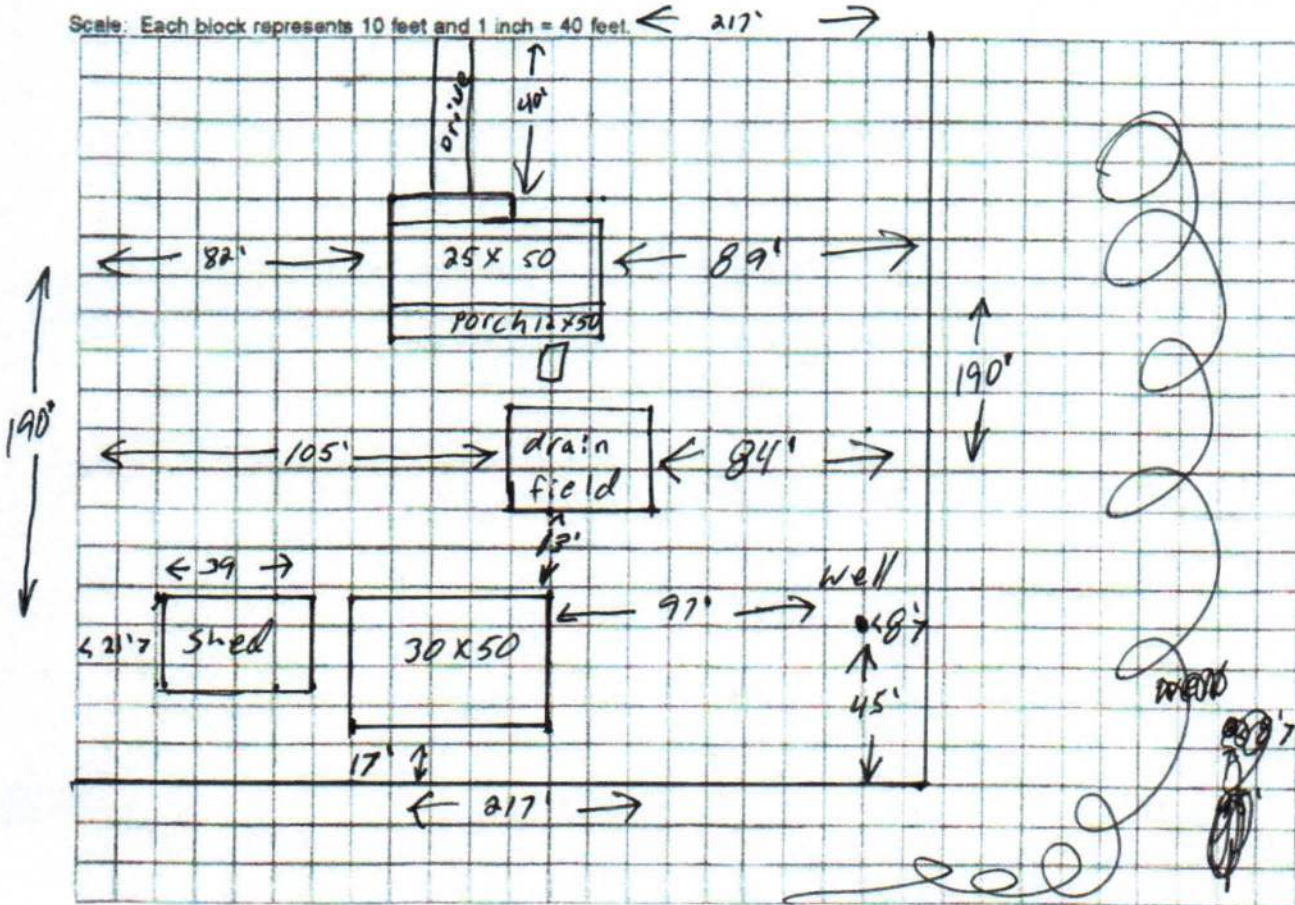 Scale: Each block represents 10 feet and 1 inch = 40 feet.
217'
Drive
40'
82'
25 x 50
89'
Porch 12x50
190'
190'
105'
drain
field
84'
13'
39
well
97'
8'
21'
Shed
30 x 50
45'
17'
217'